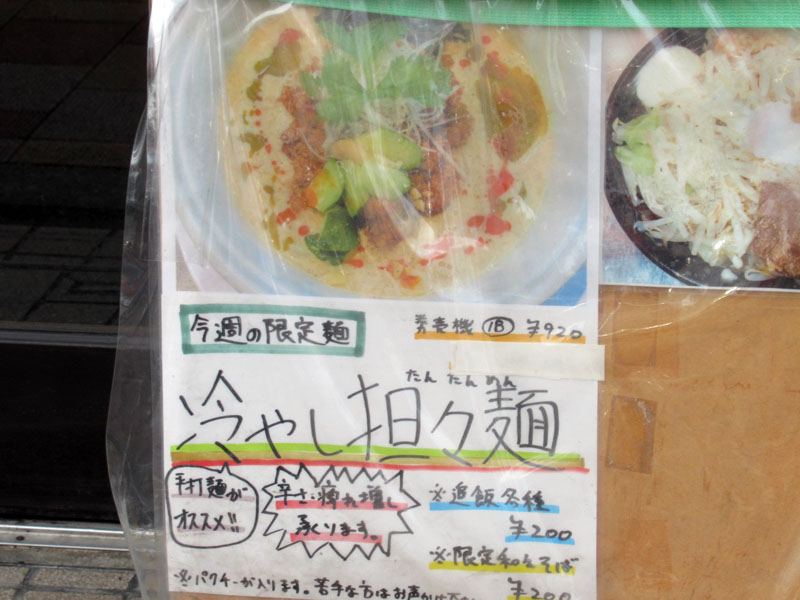 今週の限定麺
券売機 1B ¥920
たんたんめん
冷やし担々麺
手打麺が
オススメ!!
辛さ・痺れ増し
承ります。
※追飯各種
¥200
※限定和えそば
¥200
※パクチーが入ります。苦手な方はお声がけ下さい